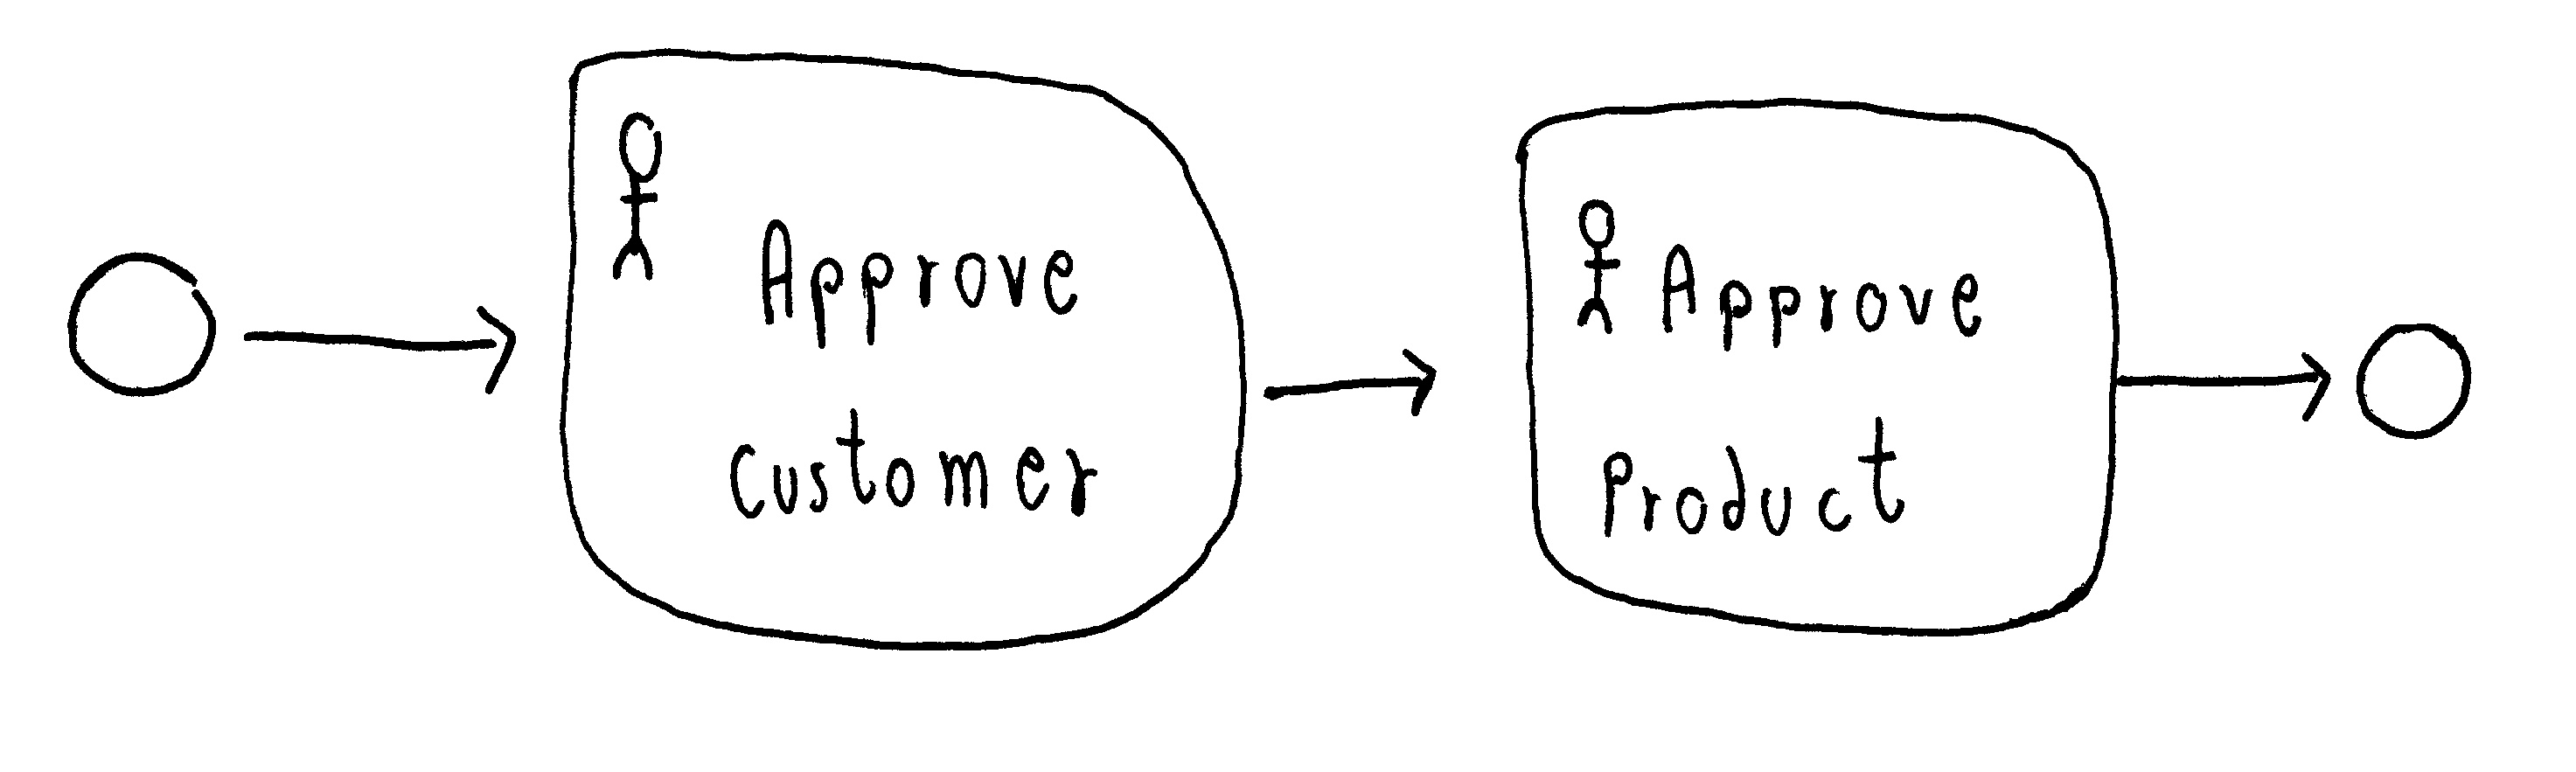 Approve
customer
Approve
Product